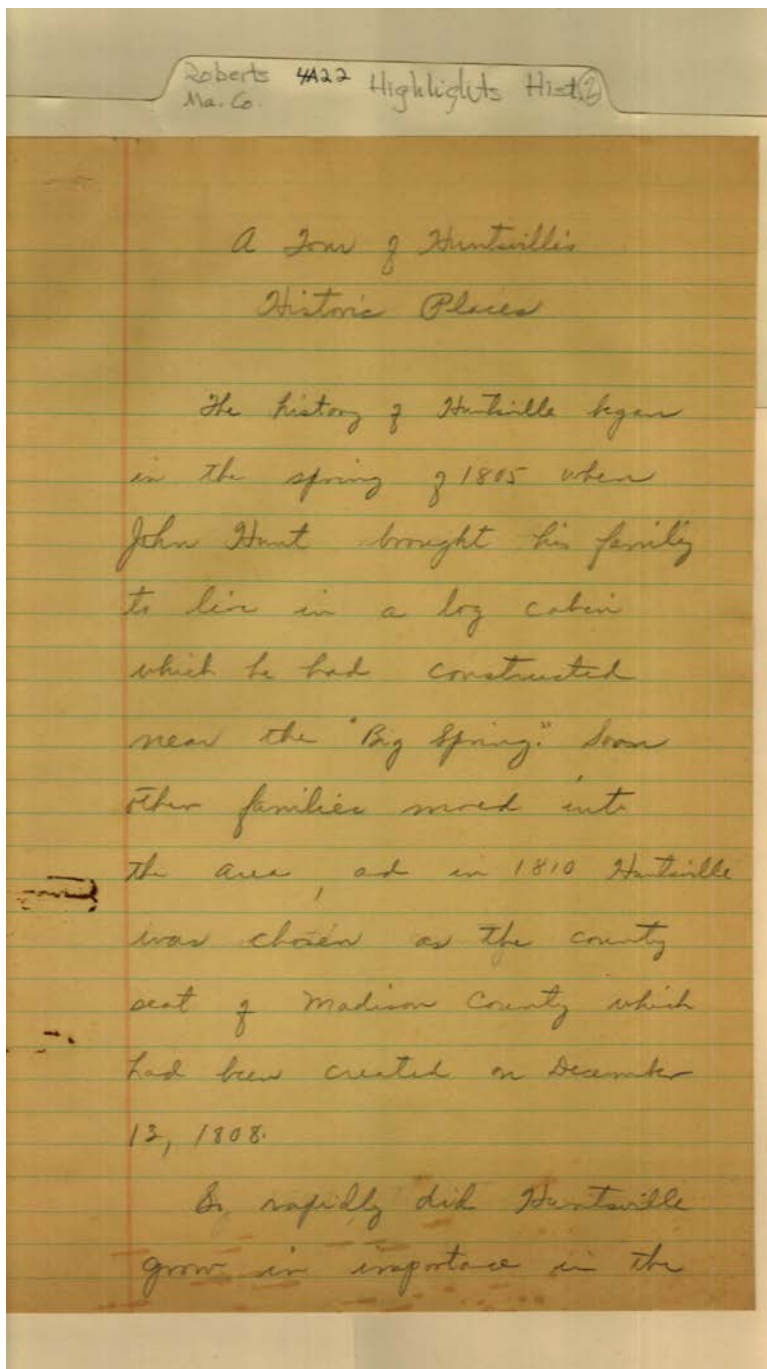 Roberts 4A22 Highlights Hist. 2
Ma. Co.
A Tour of Huntsville's
Historic Places
The history of Huntsville began
in the spring of 1805 when
John Hunt brought his family
to live in a log cabin
which he had constructed
near the "Big Spring." Soon
other families moved into
the area, and in 1810 Huntsville
was chosen as the county
seat of Madison County which
had been created on December
13, 1808.
So rapidly did Huntsville
grow in importance in the